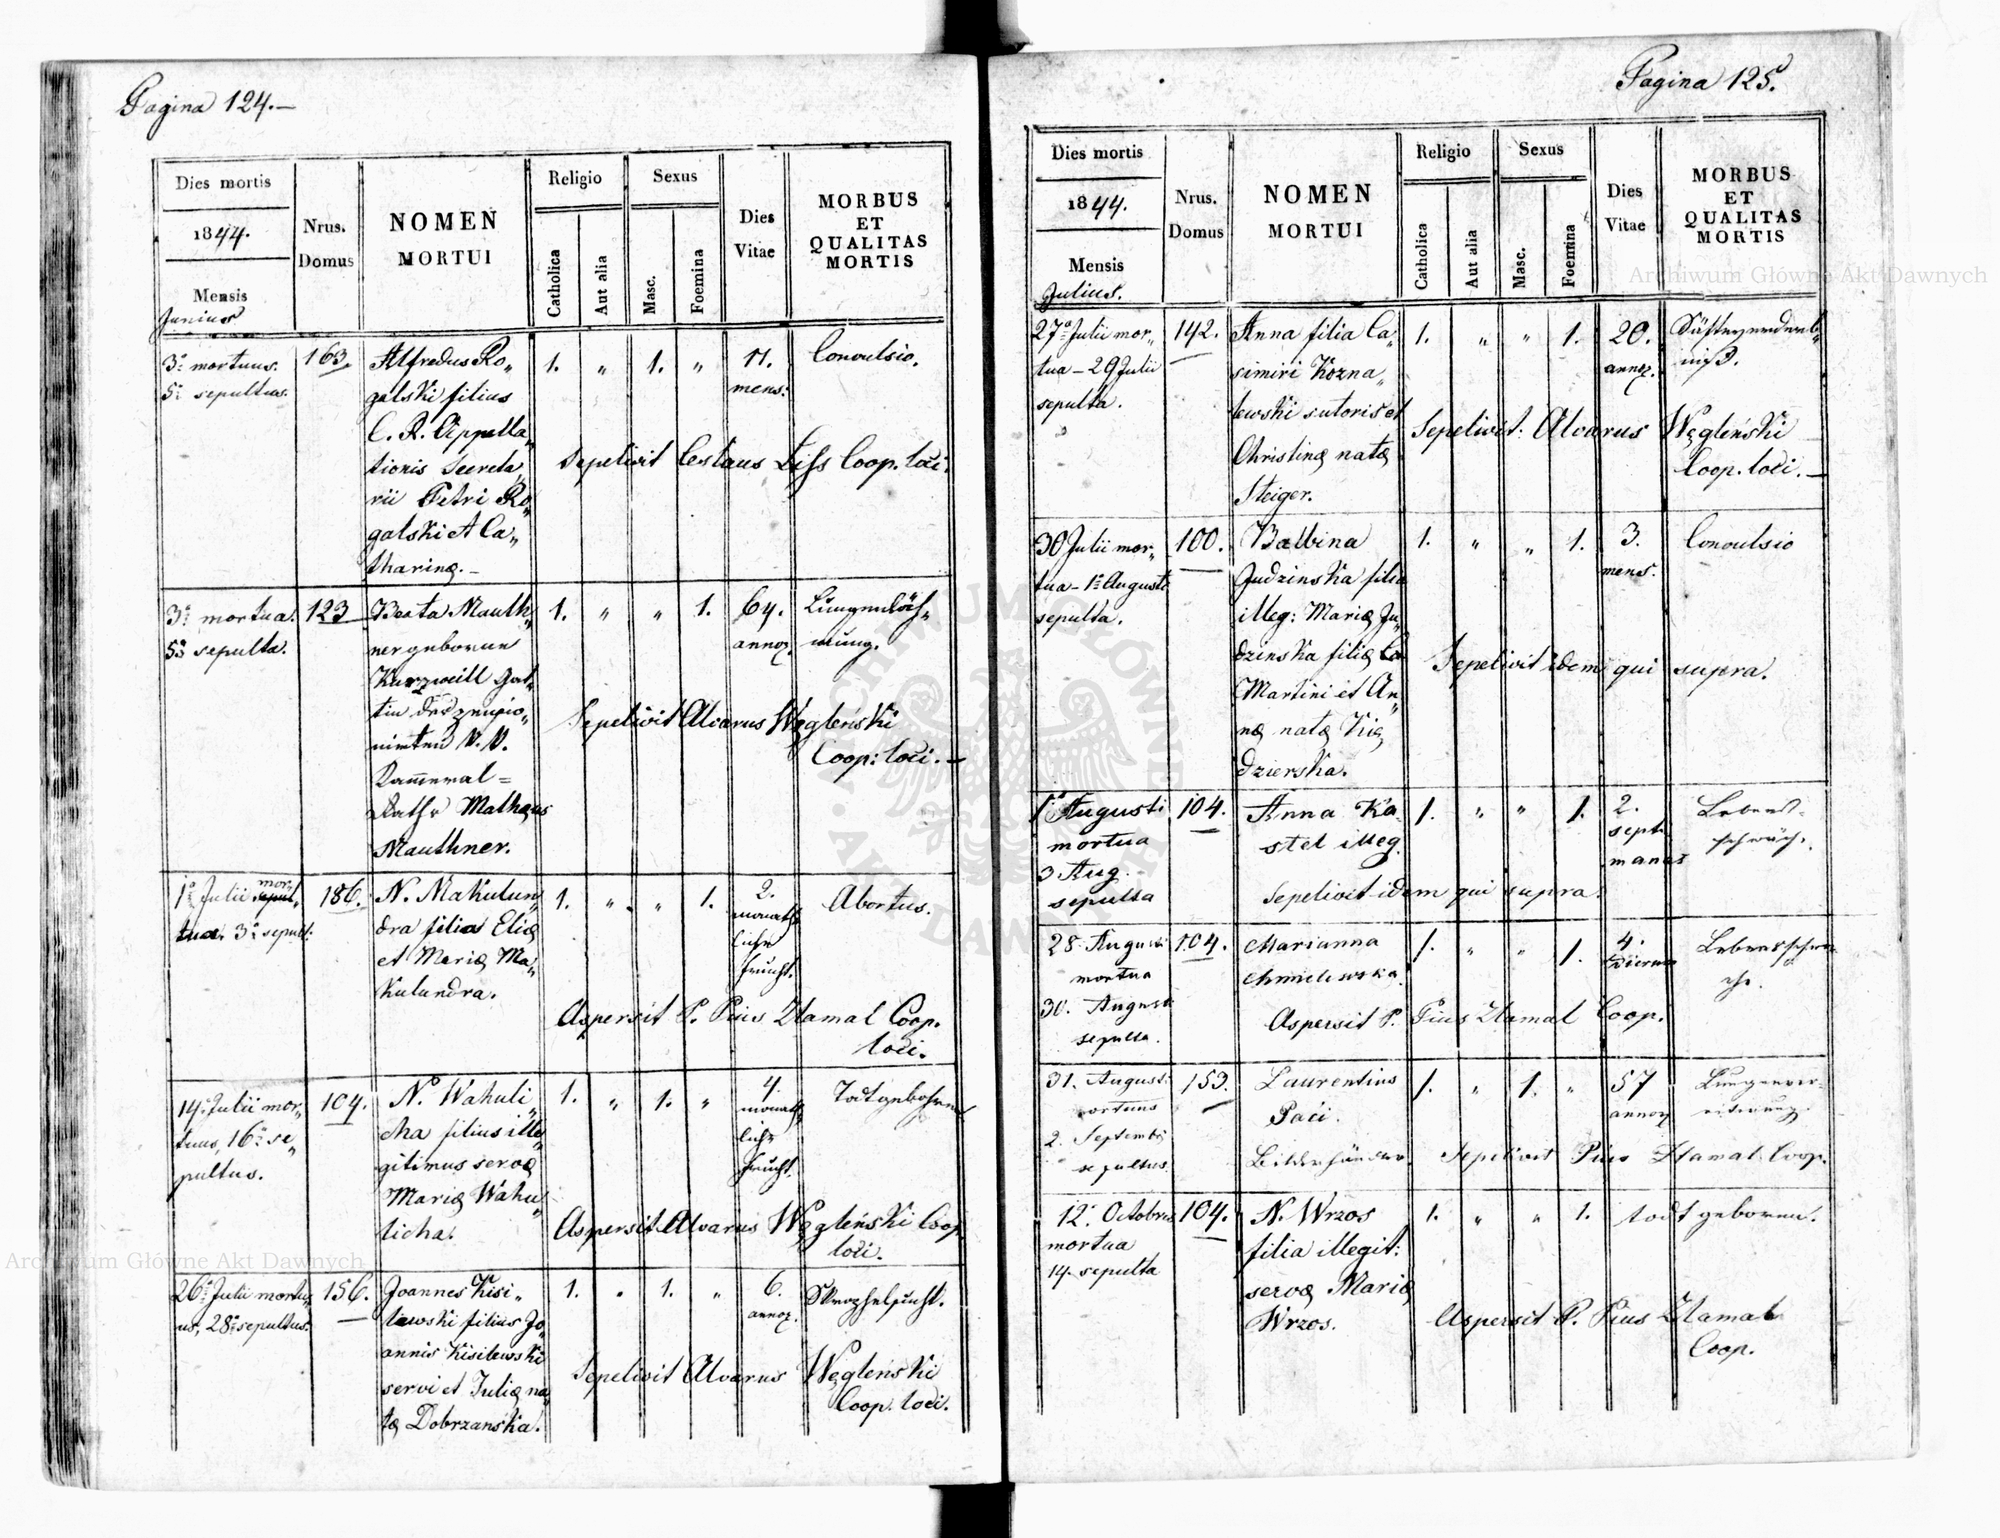 Pagina 124.—
Dies mortis
1844.
Mensis
Junius
Nrus.
Domus
NOMEN
MORTUI
Religio
Catholica
Aut alia
Sexus
Masc.
Foemina
Dies
Vitae
MORBUS
ET
QUALITAS
MORTIS
3. mortuus.
5. sepultus.
163.
Alfredus Ro„
galski filius
C. R. Appella„
tionis Secreta„
rii Petri Ro„
galski et Ca„
tharinæ.—
1. „ 1. „
11.
mens.
Convulsio.
Sepelivit Liss Coop. loci.
3. mortua.
5. sepulta.
123
Beata Mauth„
ner geborene
Kurzweill Gat„
tin des pensio„
nirten K. K.
Kammeral=
Rath's Mathæus
Mauthner.
1. „ „ 1.
64.
annor.
Lungenläh„
mung.
Sepelivit Alvarus Węgleński
Coop: loci.—
1. Julii mor„
tua. 3. sepult:
186.
N. Makulun„
dra filia Eliæ
et Mariæ Ma„
kulundra.
1. „ „ 1.
2.
monath„
liche
Frucht.
Abortus.
Aspersit P. Pius Ztamal Coop.
loci.
14. Julii mor„
tuus, 16. se„
pultus.
104.
N. Wahuli„
cha filius ille„
gitimus servæ
Mariæ Wahu„
licha.
1. „ 1. „
4.
monath„
liche
Frucht.
Todtgebohren
Aspersit Alvarus Węgleński Coop.
loci.
26. Julii mortu„
us, 28. sepultus.
156.
Joannes Kisi„
lewski filius Jo„
annis Kisilewski
servi et Juliæ na„
tæ Dobrzańska.
1. „ 1. „
6.
annor.
Sepelivit Alvarus Węgleński
Coop. loci.
Pagina 125.
Dies mortis
1844.
Mensis
Julius.
Nrus.
Domus
NOMEN
MORTUI
Religio
Catholica
Aut alia
Sexus
Masc.
Foemina
Dies
Vitae
MORBUS
ET
QUALITAS
MORTIS
27. Julii mor„
tua – 29 Julii
sepulta.
142.
Anna filia Ca„
simiri Kozna„
lewski sutoris et
Christinæ natæ
Steiger.
1. „ „ 1.
20.
annor.
Sepelivit: Alvarus Węgleński
Coop. loci.—
30 Julii mor„
tua – 1. Augusti
sepulta.
100.
Balbina
Gudzinska filia
illeg: Mariæ Gu„
dzinska filiæ
Martini et An„
næ natæ Kię„
dzierska.
1. „ „ 1.
3.
mens.
Convulsio
Sepelivit idem qui supra.
1. Augusti
mortua
3 Aug.
sepulta
104.
Anna Ka„
stel illeg.
1. „ „ 1.
2.
septi
manas
Lebens„
schwäche.
Sepelivit idem qui supra.
28. Augusti
mortua
30. Augusti
sepulta.
104.
Marianna
Chmielewska.
1. „ „ 1.
4.
dierum
Lebensschwä„
che.
Aspersit P. Pius Ztamal Coop.
31. August:
mortuus
2. Septembr
sepultus.
153.
Laurentius
Paci.
Bilderhändler.
1. „ 1. „
57
annor
Lungenver„
eiterung.
Sepelivit Pius Ztamal Coop.
12. Octobris
mortua
14. sepulta
104.
N. Wrzos
filia illegit:
servæ Mariæ
Wrzos.
1. „ „ 1.
todt geboren.
Aspersit P. Pius Ztamal
Coop.
Archiwum Główne Akt Dawnych
Archiwum Główne Akt Dawnych
ARCHIWUM GŁÓWNE AKT DAWNYCH